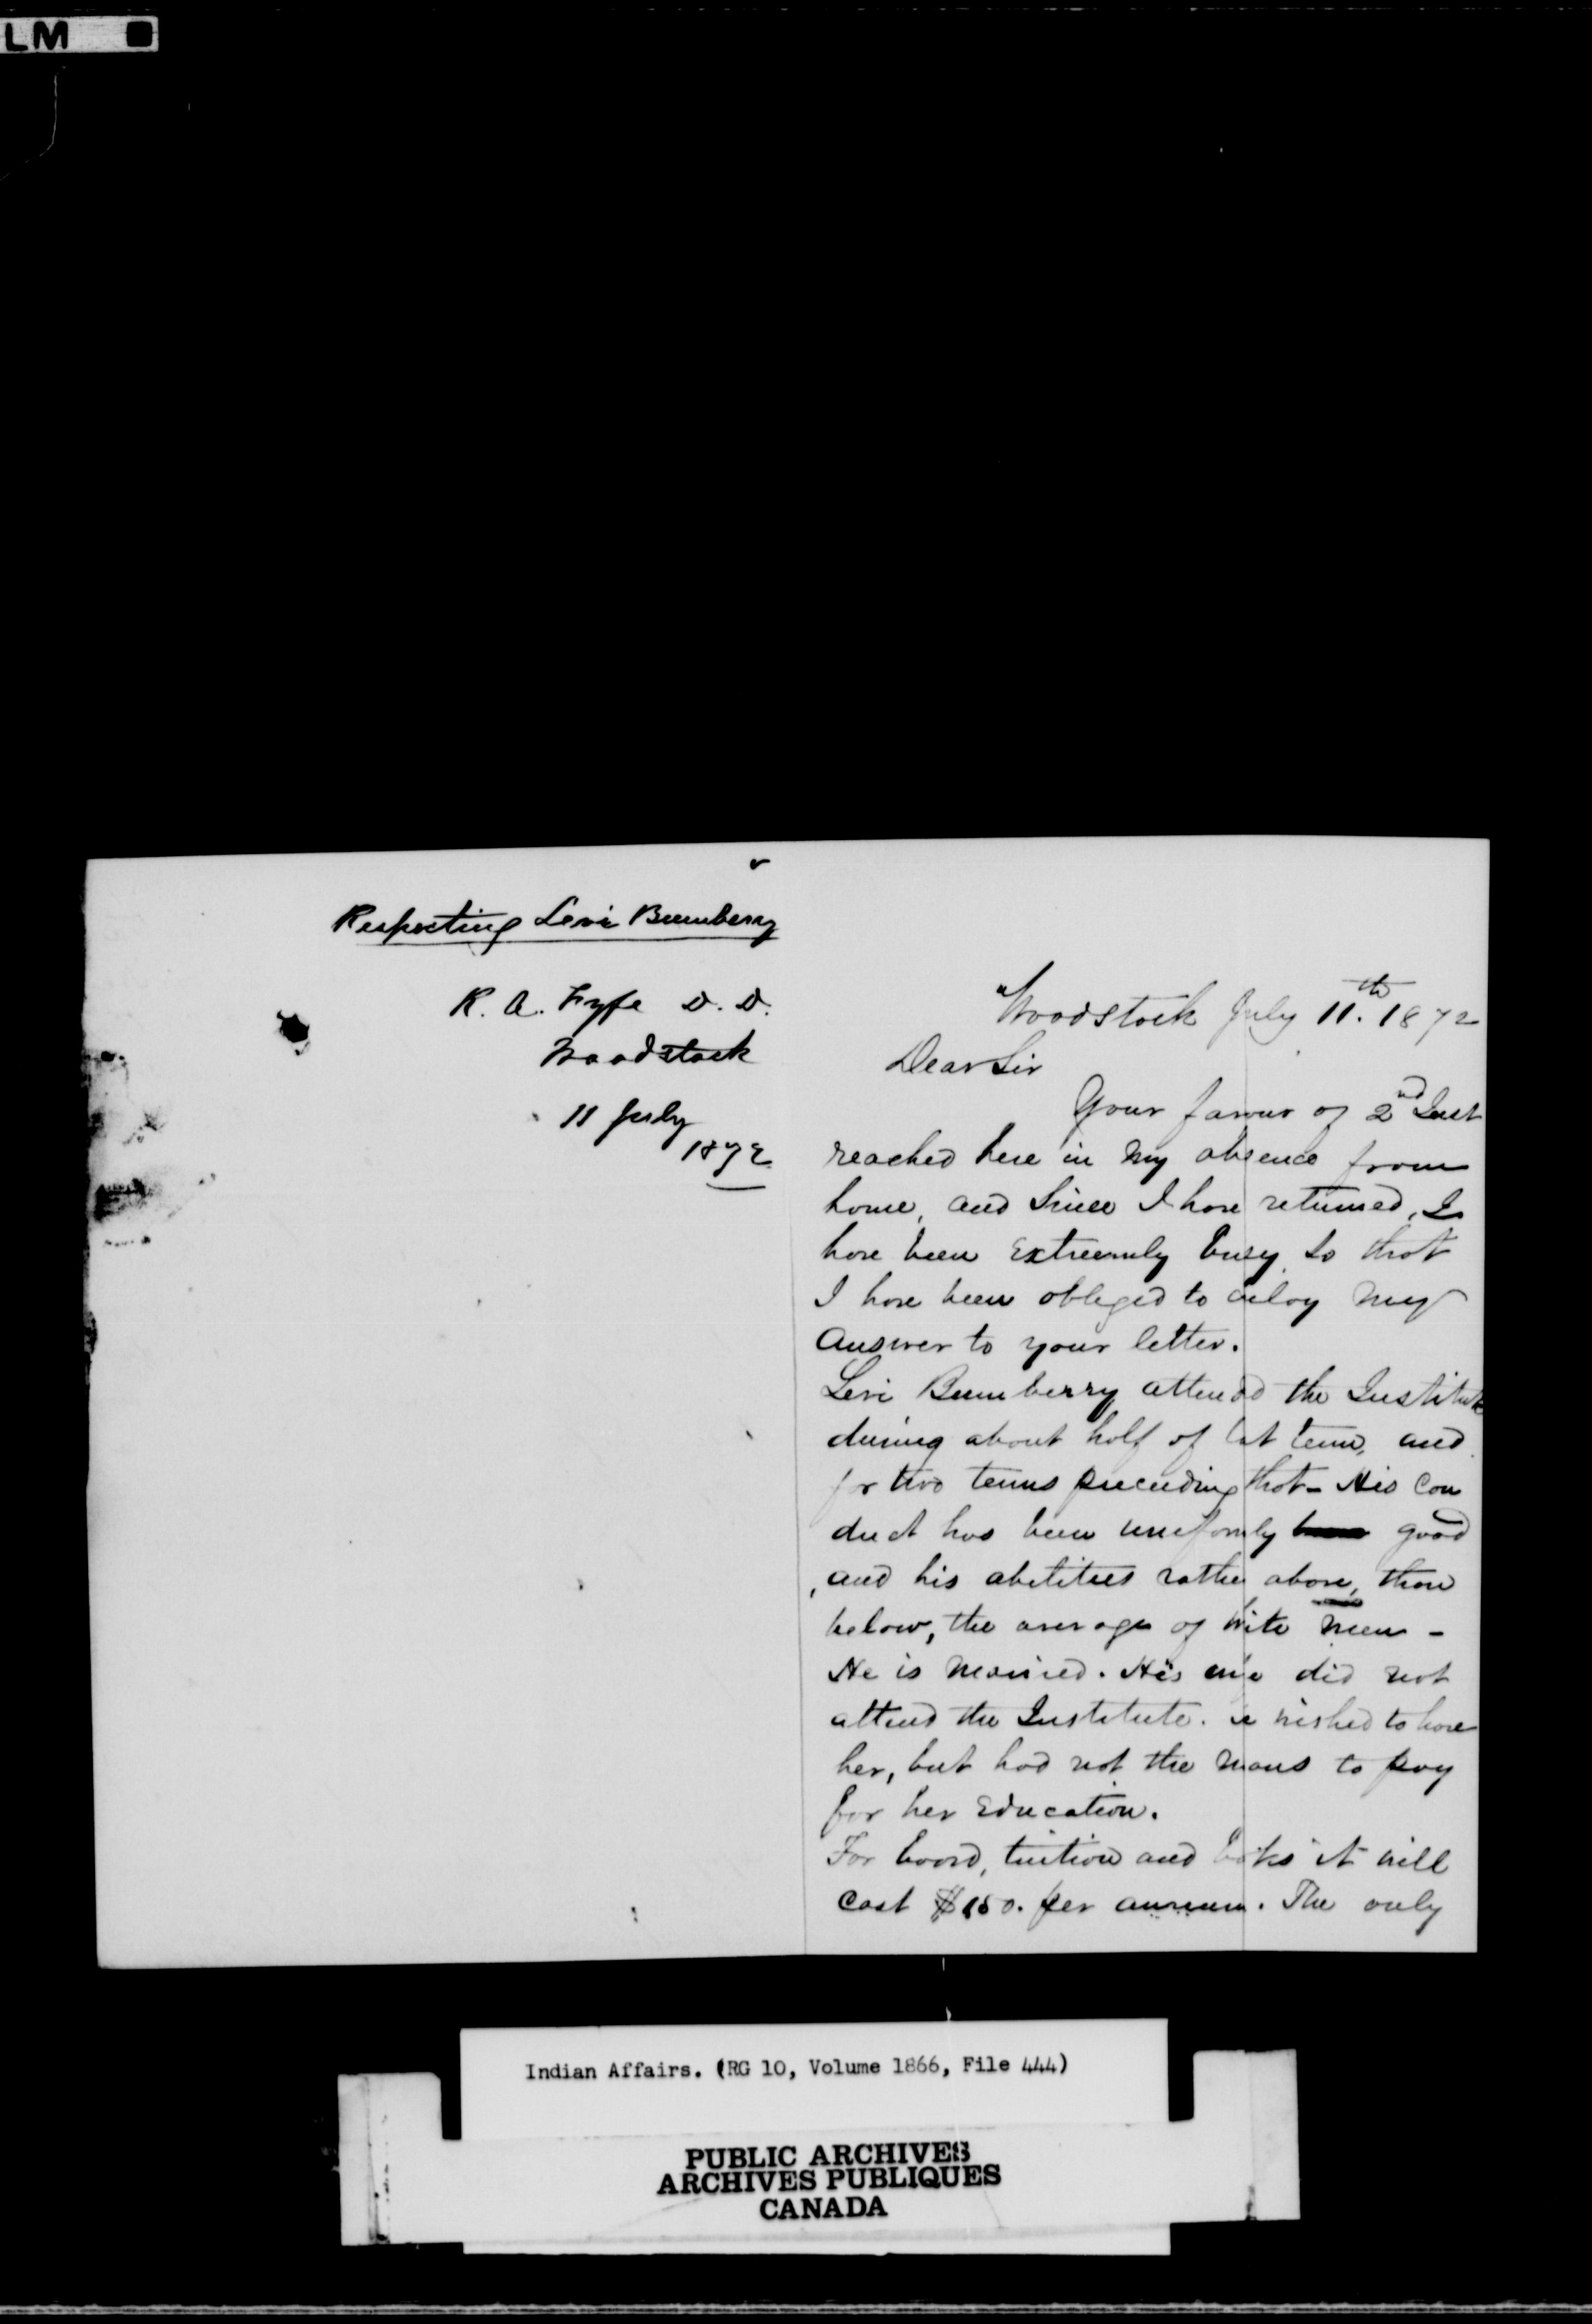 LM
Respecting Levi Bumberry
R. A. Fyfe D. D.
Woodstock
11 July
1872
Woodstock July 11th. 1872
Dear Sir
Your favour of 2nd Inst
reached here in my absence from
home, and since I have returned, I
have been extremely busy so that
I have been obliged to delay my
answer to your letter.
Levi Bumberry attended the Institute
during about half of last term, and
for two terms preceeding that - His con
duct has been uniformly good
, and his abilities rather above, than
below, the average of white men -
He is married. His wife did not
attend the Institute. He wished to have
her, but had not the means to pay
for her Education.
For board, tuition and books it will
cost $150. per annum. The only
Indian Affairs. (RG 10, Volume 1866, File 444)
PUBLIC ARCHIVES
ARCHIVES PUBLIQUES
CANADA